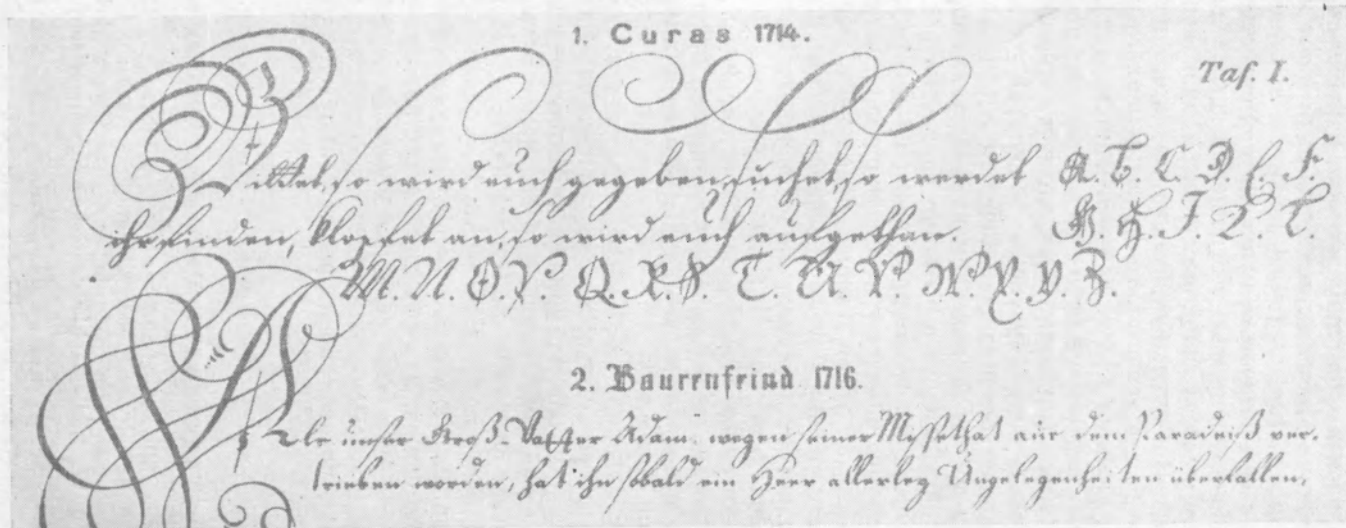 1. Curas 1714.
Taf. I.
Bittet, so wird euch gegeben, suchet, so werdet A. B. C. D. E. F.
ihr finden, klopfet an, so wird euch aufgethan. G. H. J. K. L.
M. N. O. P. Q. R. S. T. U. V. W. X. Y. Z.
2. Baurenfeind 1716.
Als unser Groß-Vatter Adam wegen seiner Missethat aus dem Paradeiß ver-
trieben worden, hat ihn sobald ein Heer allerley Ungelegenheiten überfallen,